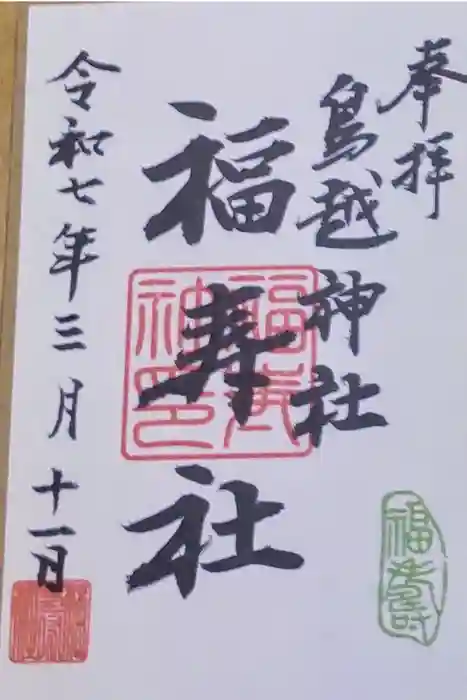 奉拝
鳥越神社
福寿社
令和七年三月十一日
福寿
神印